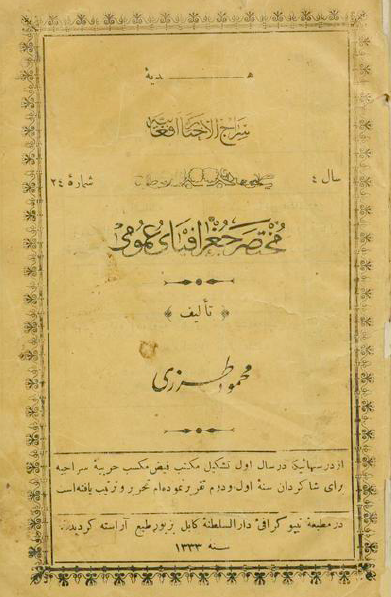 هدیهٔ
سراج الاخبار افغانیه
سال ٤
شمارهٔ ٢٤
مختصر جغرافیای عمومی
﴿ تألیف ﴾
محمود طرزی
از درسهائیکه در سال اول تشکیل مکتب فیض مکسب حربیهٔ سراجیه
برای شاکردان سنهٔ اول و دوم تقریر نموده ام تحریر و ترتیب یافته است
در مطبعهٔ تیپو کرافئ دارالسلطنهٔ کابل بزیور طبع آراسته کردید
سنه ١٣٣٣